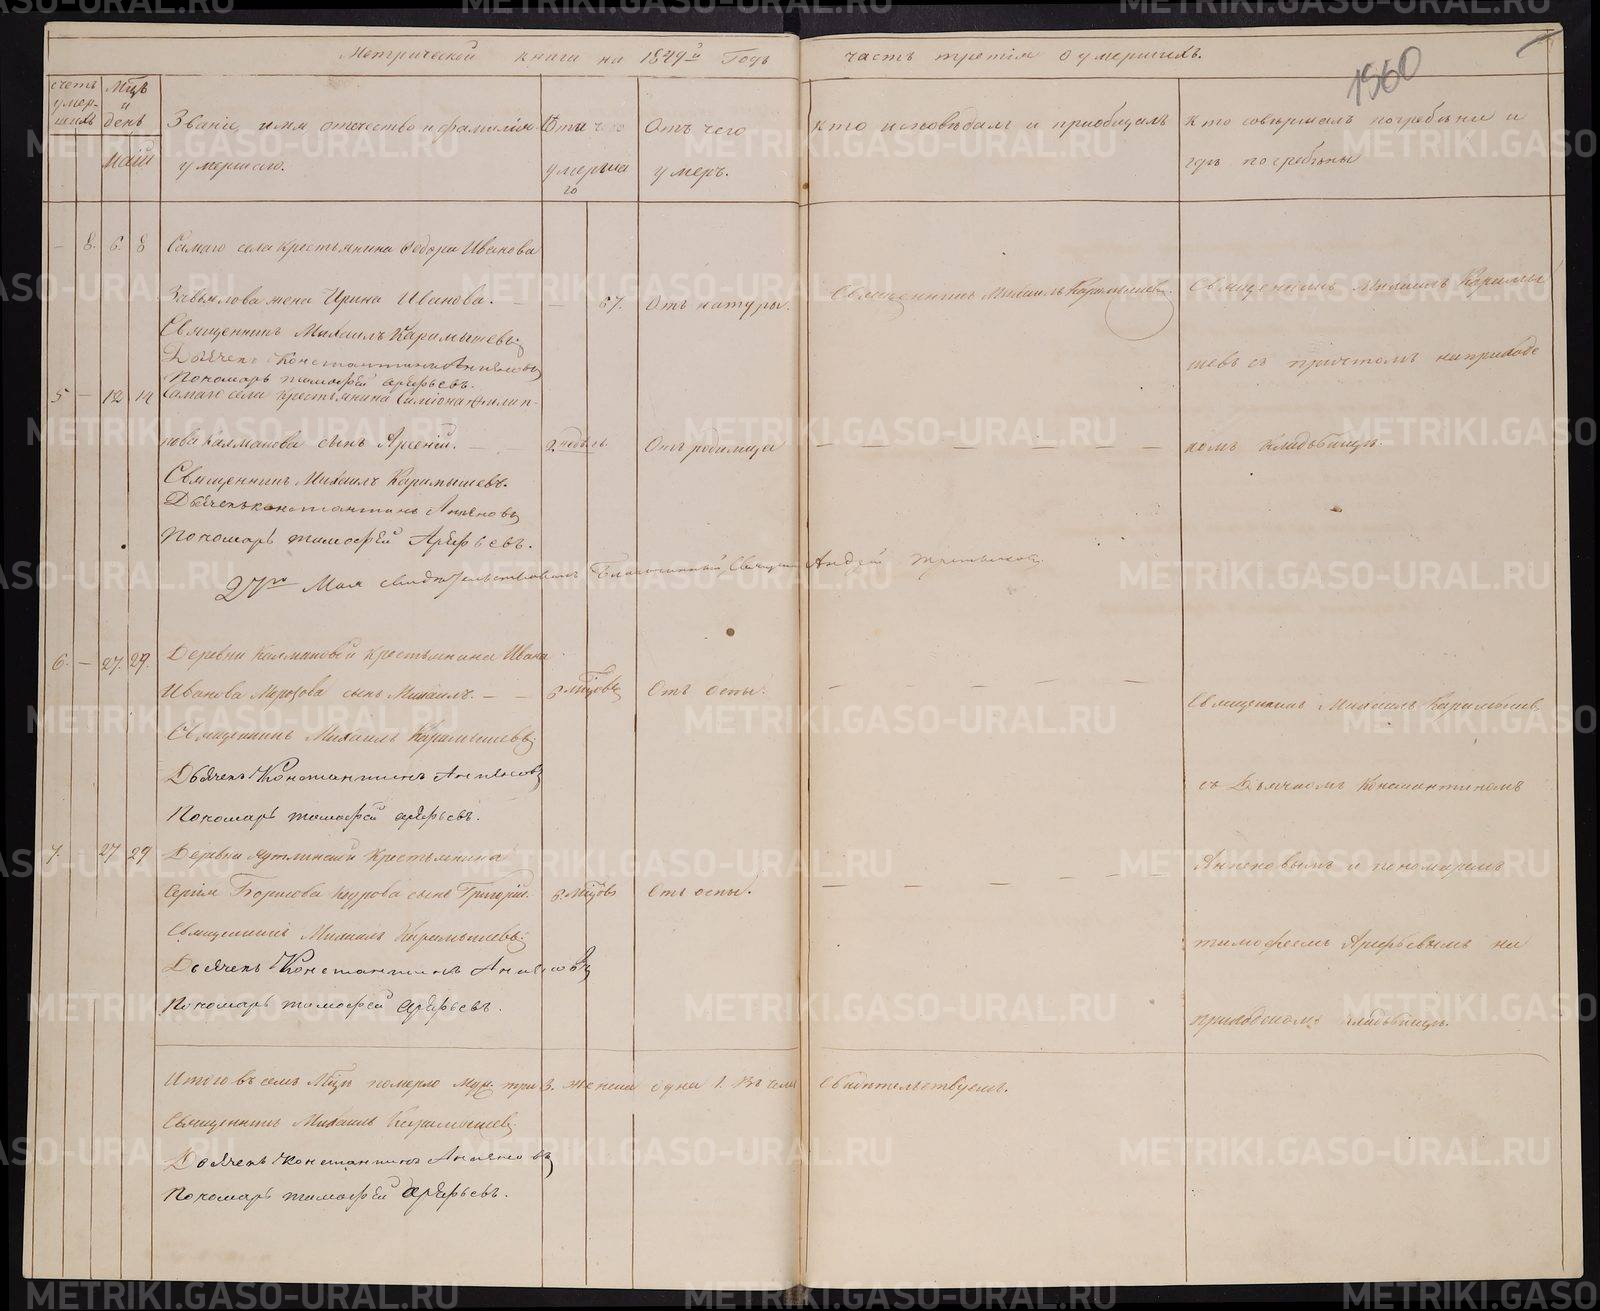 Метрической книги на 1849й Годъ часть третія о умершихъ.
1560
счетъ умер-шихъ
Мцъ и день
Маій
Званіе имя отечество и фамилія
умершаго.
умерша
го
Отъ чего
умеръ.
Кто исповѣдалъ и пріобщалъ
Кто совершалъ погребеніе и
гдѣ погребены
— 8. 6. 8 Самаго села крестьянина Федора Иванова
Завьялова жена Ирина Иванова. — — 67. Отъ натуры. Священникъ Михаилъ Карамышевъ. Священникъ Михаилъ Карамы
Священникъ Михаилъ Карамышевъ
Дьячекъ Константинъ
Пономарь тимофей арефьевъ.
шевъ съ причтомъ на приходс
5 — 12 14 Самаго села крестьянина Симіона Филип-
пова Калмакова сынъ Арсеній. — — 2 недѣль Отъ родимца — — — — — комъ кладьбищѣ.
Священникъ Михаилъ Карамышевъ.
Дьячекъ константинъ
Пономарь тимофей Арефьевъ.
27го Мая свидѣтельствовалъ Благочинный Священникъ Андрей
6. — 27. 29. Деревни Калмаковой крестьянина Ивана
Иванова Морозова сынъ Михаилъ. — — 6 мѣцовъ Отъ оспы. — — — — Священникъ Михаилъ Карамышев
Священникъ Михаилъ Карамышевъ
Дьячекъ Константинъ
съ Дьячкомъ Константиномъ
Пономарь тимофей арефьевъ.
7. — 27 29 Деревни крестьянина
и пономаремъ
Сергія Борисова сынъ Григорій. 6. мѣцовъ Отъ оспы. — — — — — —
Священникъ Михаилъ Карамышевъ
тимофеемъ Арефьевымъ на
Дьячекъ Константинъ
Пономарь тимофей арефьевъ.
приходскомъ кладьбищѣ.
Итого въ семъ Мцѣ померло муж. три 3. женска одна 1. Въ чемъ свидѣтельствуемъ.
Священникъ Михаилъ Карамышевъ
Дьячекъ Константинъ
Пономарь тимофей арефьевъ.
METRIKI.GASO-URAL.RU